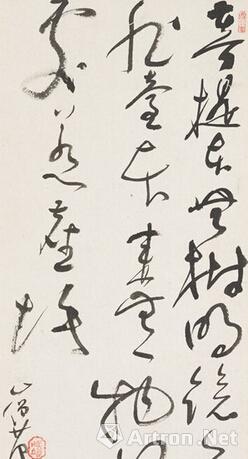 菩提本無樹明鏡亦
非臺本來無一物何
處惹塵埃
山僧
Artron.Net